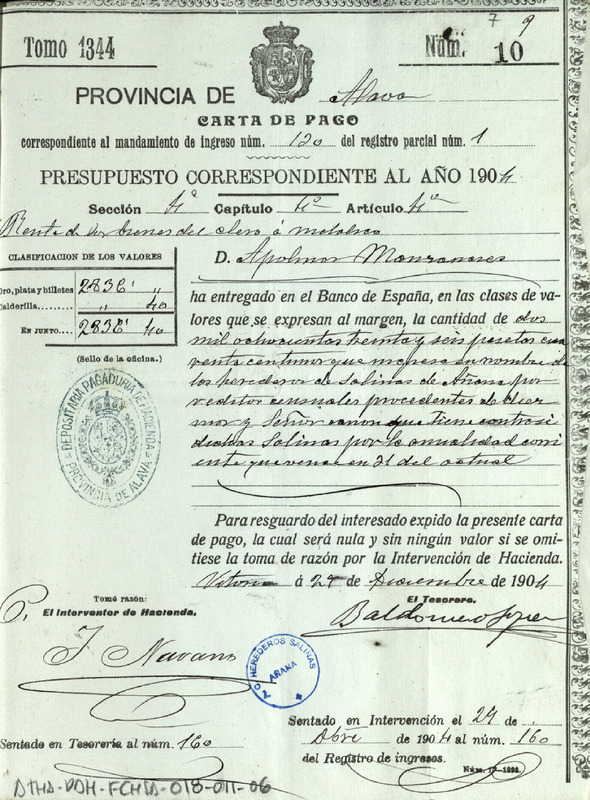 7 9
Tomo 1344
Núm. 10
PROVINCIA DE Alava
CARTA DE PAGO
correspondiente al mandamiento de ingreso núm. 120 del registro parcial núm. 1
PRESUPUESTO CORRESPONDIENTE AL AÑO 1904
Sección 4ª Capítulo 4º Artículo 4º
Renta de los bienes del clero á metalico
CLASIFICACION DE LOS VALORES
Oro, plata y billetes 2836' "
Calderilla.... " 40
EN JUNTO..... 2836' 40
(Sello de la oficina.)
DEPOSITARIA PAGADURIA DE HACIENDA
PROVINCIA DE ALAVA
D. Apolinar Manzanares
ha entregado en el Banco de España, en las clases de va-
lores que se expresan al margen, la cantidad de dos
mil ochocientas treinta y seis pesetas cua
renta centimos que ingresa en nombre de
los herederos de Salinas de Añana por
reditos censuales procedentes de
y Señor canon que tiene contra si
dichas Salinas por la anualidad corri
ente que vence en 31 del actual
Para resguardo del interesado expido la presente carta
de pago, la cual será nula y sin ningún valor si se omi-
tiese la toma de razón por la Intervención de Hacienda.
Vitoria á 24 de Diciembre de 1904
Tomé razón:
P. El Interventor de Hacienda.
J. Navarro
El Tesorero.
Baldomero
HEREDEROS SALINAS
AÑANA
Sentado en Intervención el 24 de
Dbre de 1904 al núm. 160
del Registro de ingresos.
Sentado en Tesorería al núm. 160
ATHA-DAH-FCHTA-018-011-06